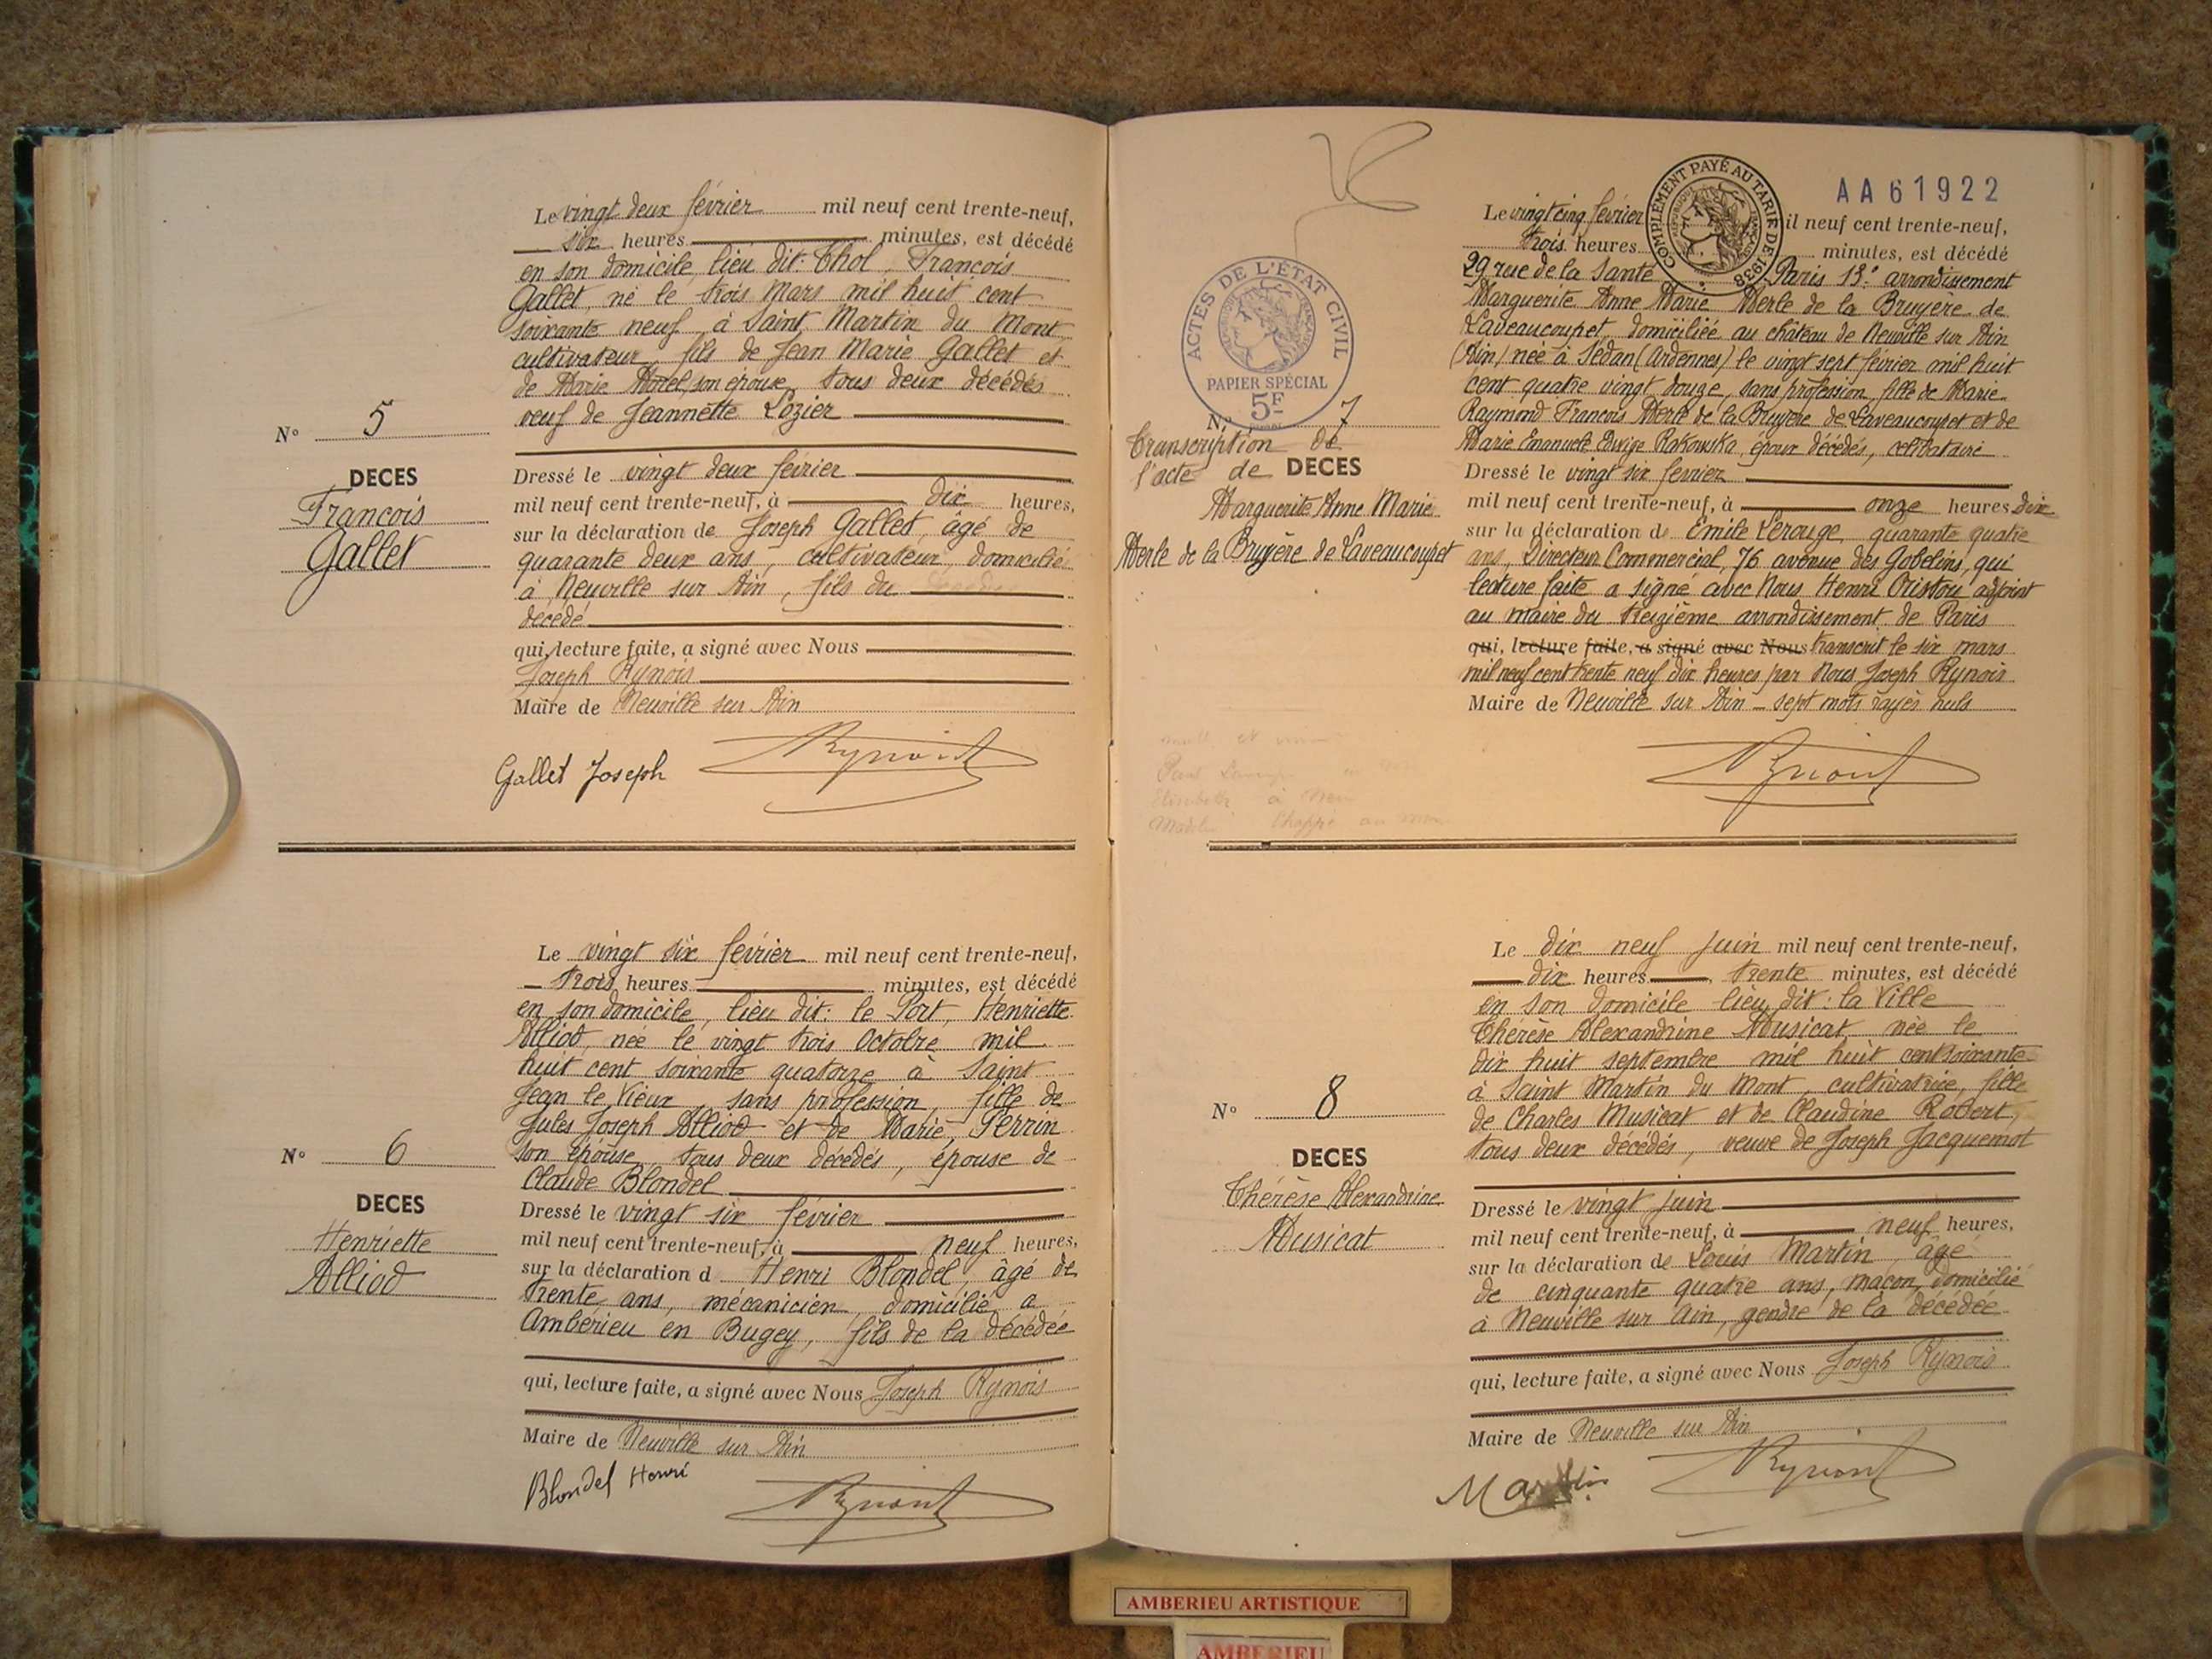 Le vingt deux février mil neuf cent trente-neuf,
six heures minutes, est décédé
en son domicile, lieu dit: Thol, François
Gallet, né le trois Mars mil huit cent
soixante neuf, à Saint Martin du Mont
cultivateur, fils de Jean Marie Gallet et
de Marie Morel, son épouse, tous deux décédés
veuf de Jeannette Lozier
N° 5
DECES
François
Gallet
Dressé le vingt deux février
mil neuf cent trente-neuf, à dix heures,
sur la déclaration de Joseph Gallet, âgé de
quarante deux ans, cultivateur, domicilié
à Neuville sur Ain, fils du
décédé
qui, lecture faite, a signé avec Nous
Joseph Rynois
Maire de Neuville sur Ain
Gallet Joseph
Le vingt six février mil neuf cent trente-neuf,
trois heures minutes, est décédé
en son domicile, lieu dit: le Port, Henriette
Alliod, née le vingt trois Octobre mil
huit cent soixante quatorze à Saint
Jean le Vieux, sans profession, fille de
Jules Joseph Alliod et de Marie Perrin
son épouse, tous deux décédés, épouse de
Claude Blondel
N° 6
DECES
Henriette
Alliod
Dressé le vingt six février
mil neuf cent trente-neuf, à neuf heures,
sur la déclaration d Henri Blondel, âgé de
trente ans, mécanicien, domicilié a
Ambérieu en Bugey, fils de la décédée
qui, lecture faite, a signé avec Nous Joseph Rynois
Maire de Neuville sur Ain
Blondel Henri
AA61922
COMPLÉMENT PAYÉ AU TARIF DE 1938
Le vingt cinq février il neuf cent trente-neuf,
trois heures minutes, est décédé
29 rue de la Santé Paris 13e arrondissement
Marguerite Anne Marie Merle de la Bruyère de
Laveaucoupet, domiciliée au château de Neuville sur Ain
(Ain) née à Sedan (Ardennes) le vingt sept février mil huit
cent quatre vingt douze, sans profession, fille de Marie
Raymond François Merle de la Bruyère de Laveaucoupet et de
Marie Emanuele Edwige Rakowska, époux décédés, célibataire
ACTES DE L'ÉTAT CIVIL
PAPIER SPÉCIAL
5F
N° 7
Transcription de
l'acte de DECES
Marguerite Anne Marie
Merle de la Bruyère de Laveaucoupet
Dressé le vingt six février
mil neuf cent trente-neuf, à onze heures dix
sur la déclaration d Emile Lerouge, quarante quatre
ans, Directeur Commercial, 76 avenue des Gobelins, qui
lecture faite a signé avec Nous Henri Oriston adjoint
au maire du treizième arrondissement de Paris
qui, lecture faite, a signé avec Nous transcrit le six mars
mil neuf cent trente neuf dix heures par Nous Joseph Rynois
Maire de Neuville sur Ain - sept mots rayés nuls
Le dix neuf juin mil neuf cent trente-neuf,
dix heures, trente minutes, est décédé
en son domicile lieu dit: la Ville
Thérèse Alexandrine Musicat, née le
dix huit septembre mil huit cent soixante
à Saint Martin du Mont, cultivatrice, fille
de Charles Musicat et de Claudine Robert,
tous deux décédés, veuve de Joseph Jacquemot
N° 8
DECES
Thérèse Alexandrine
Musicat
Dressé le vingt juin
mil neuf cent trente-neuf, à neuf heures,
sur la déclaration de Louis Martin âgé
de cinquante quatre ans, maçon, domicilié
à Neuville sur Ain, gendre de la décédée
qui, lecture faite, a signé avec Nous Joseph Rynois
Maire de Neuville sur Ain
Martin
AMBERIEU ARTISTIQUE
AMBERIEU